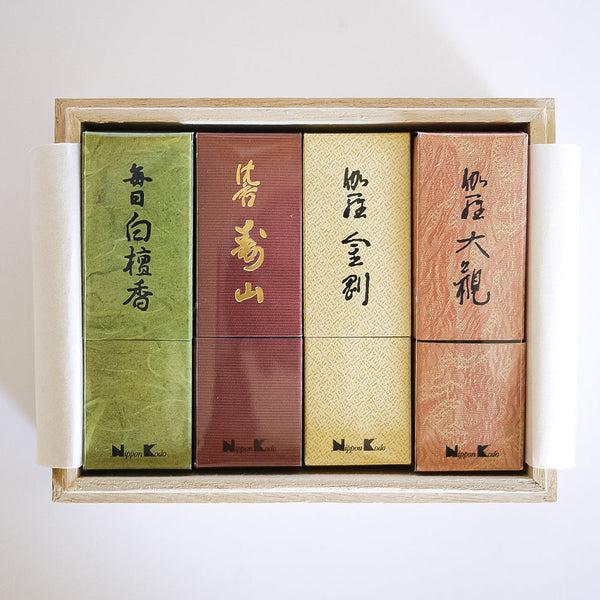 毎日白檀香
Nippon Kodo
沈香寿山
Nippon Kodo
伽羅金剛
Nippon Kodo
伽羅大観
Nippon Kodo